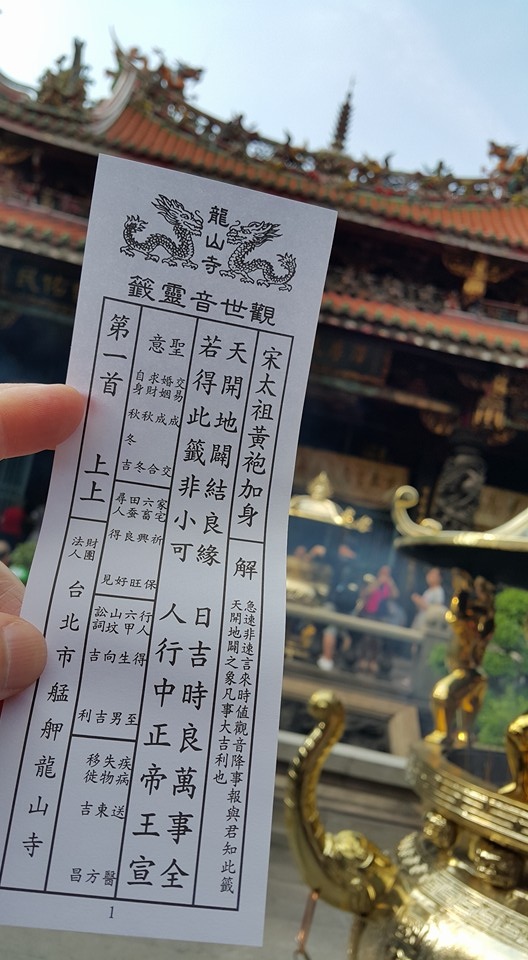 龍山寺
觀世音靈籤
宋太祖黃袍加身
解
急速非速言來時值觀音降事報與君知此籤
天開地闢之象凡事大吉利也
天開地闢結良緣 日吉時良萬事全
若得此籤非小可 人行中正帝王宣
聖意
交易成交
婚姻成合
求財秋冬
自身秋冬吉
家宅祈保
六畜興旺
田蚕良好
尋人得見
行人得至
六甲生男
山墳向吉
訟詞吉利
疾病送醫
失物東方
移徙吉昌
第一首 上上
財團法人 台北市艋舺龍山寺
1